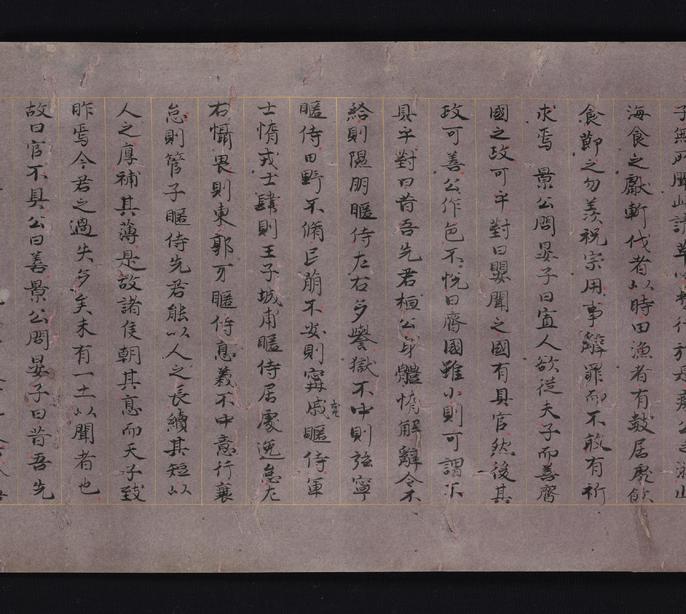 子無所聞此請革
海食之獻斬伐者以時田漁者有數居處飲
食節之勿羨祝宗用事辭罪而不敢有祈
求焉 景公問晏子曰寡人欲從夫子而善齊
國之政可乎對曰嬰聞之國有具官然後其
政可善公作色不悅曰齊國雖小則可謂不
具乎對曰昔吾先君桓公身體惰解辭令不
給則隰朋暱侍左右多譽獄不中則弦寧
暱侍田野不脩民萌不安則寗戚暱侍軍
士惰戎士肆則王子城甫暱侍居處逸怠左
右懾畏則東郭牙暱侍德義不中意行衰
怠則管子暱侍先君能以人之長續其短以
人之厚補其薄是故諸侯朝其德而天子致
胙焉今君之過失多矣未有一士以聞者也
故曰官不具公曰善景公問晏子曰昔吾先